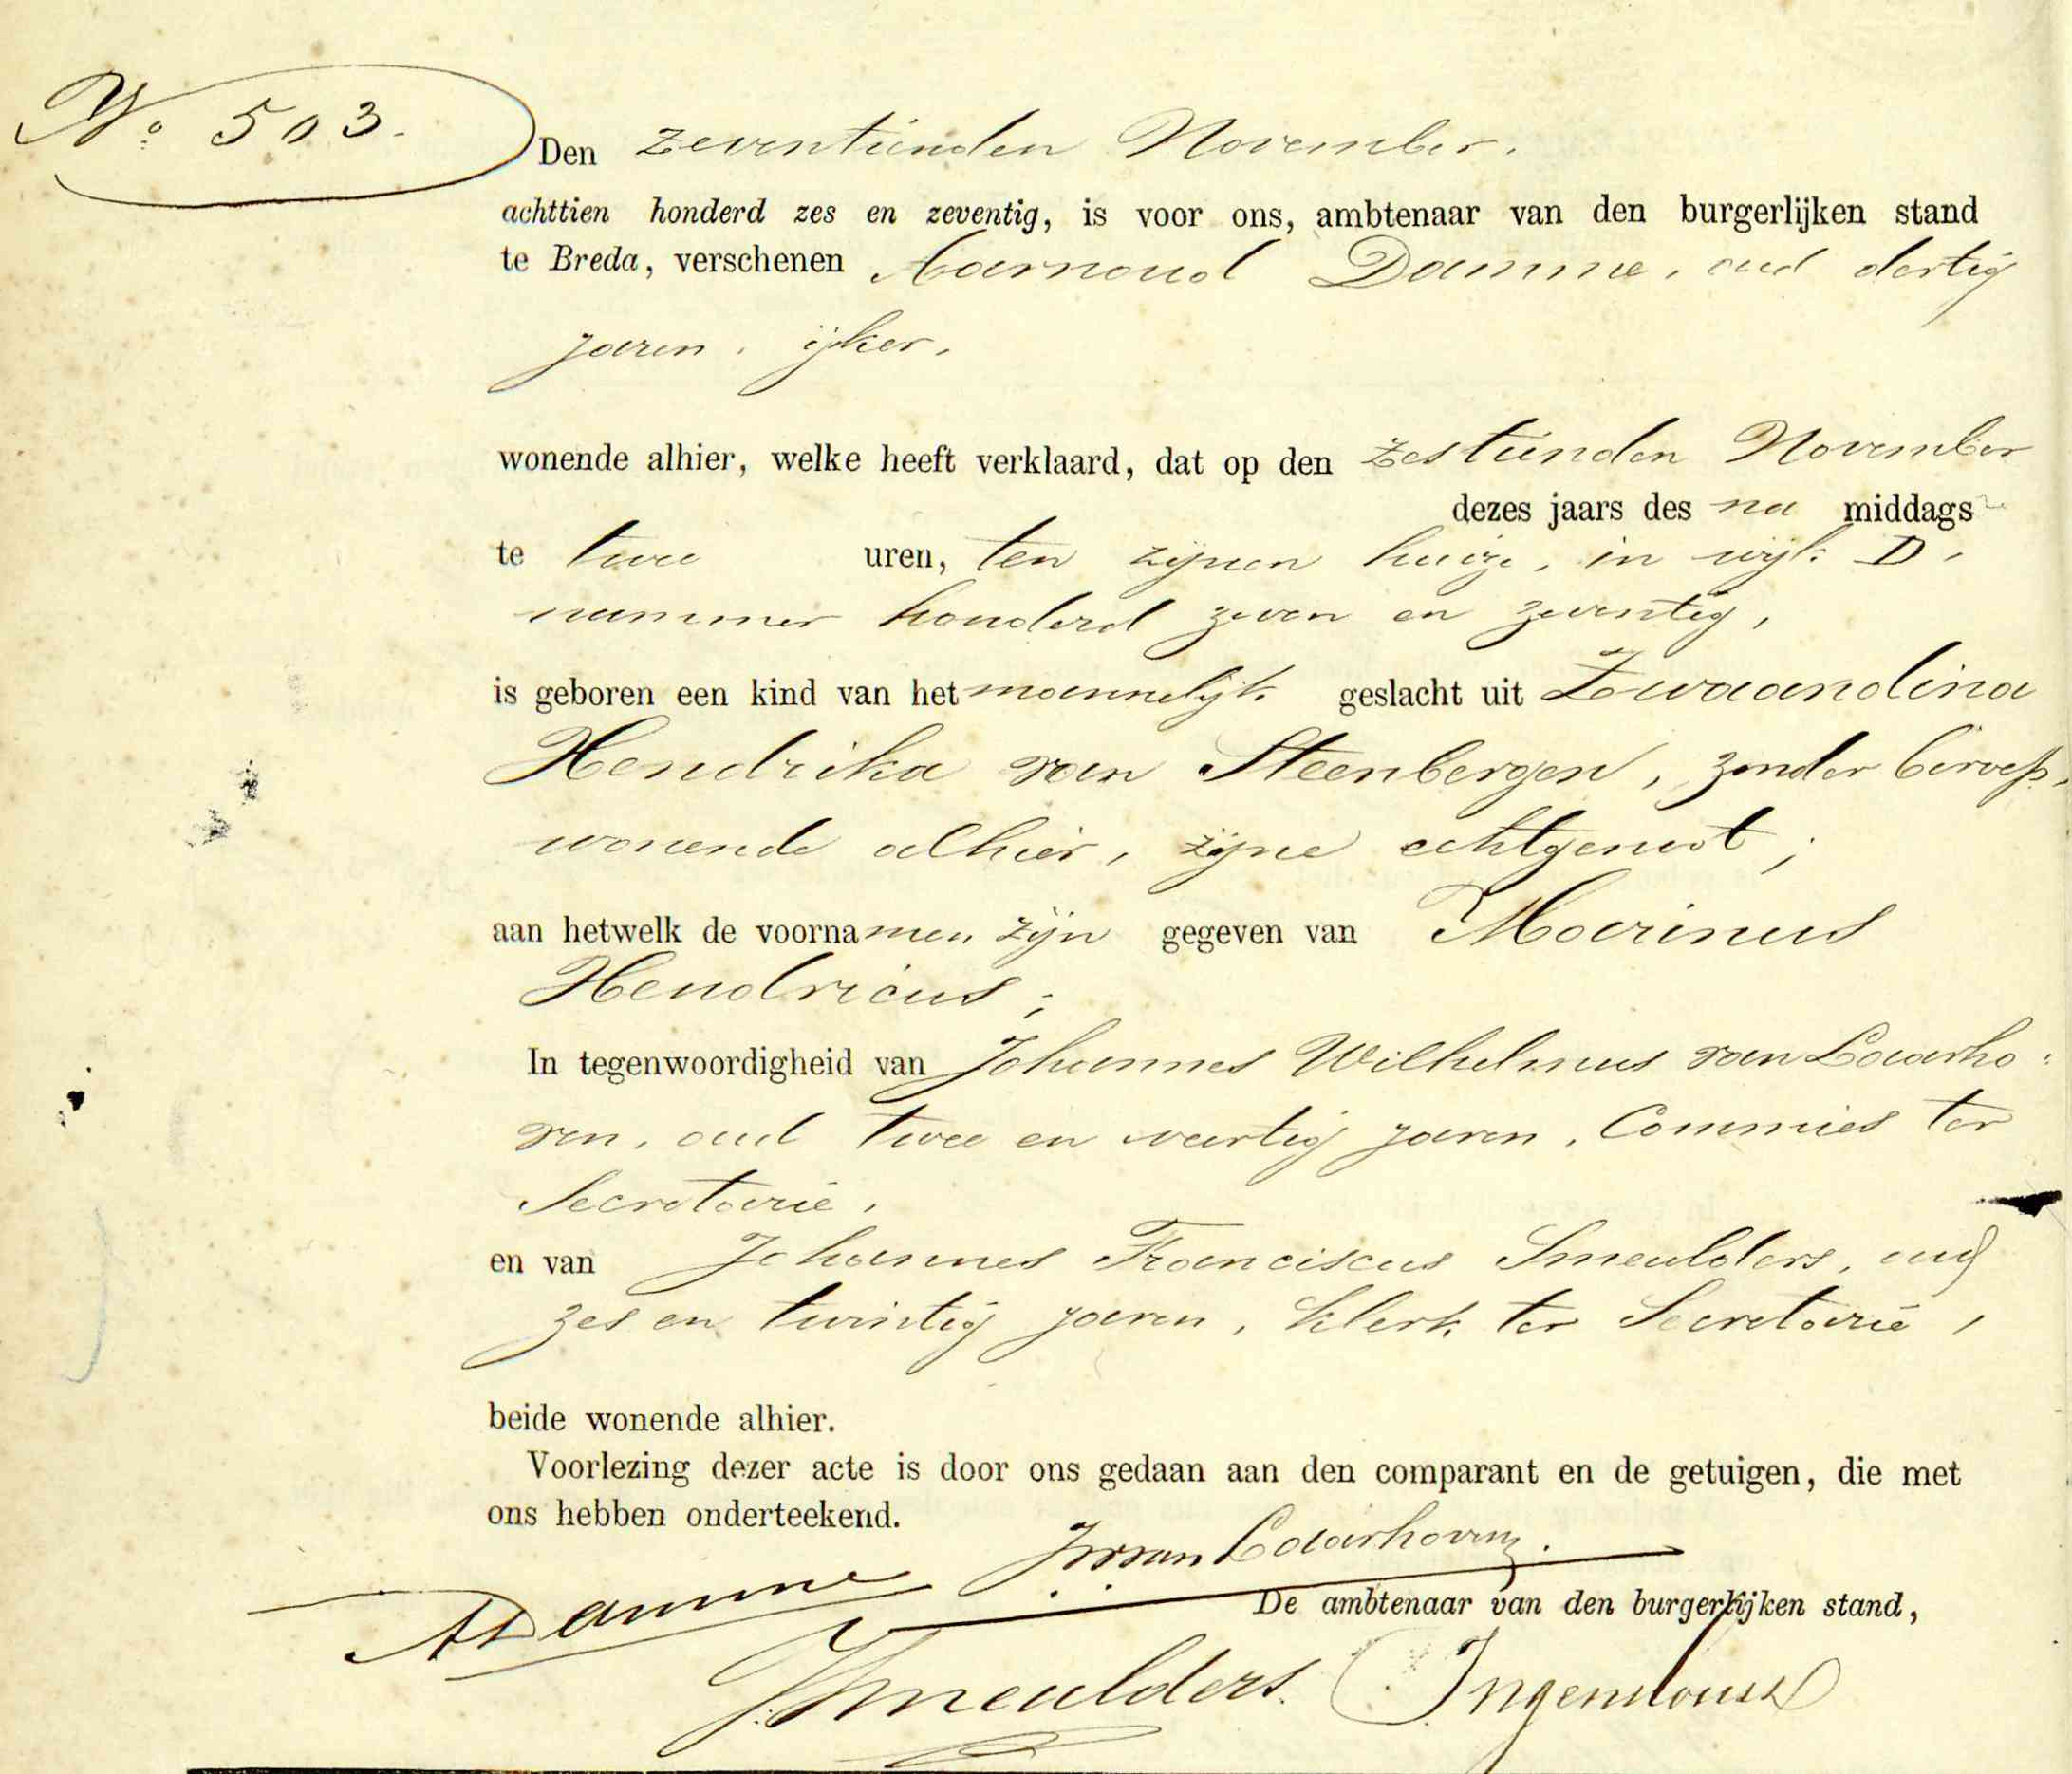 No. 503.
Den zeventienden November.
achttien honderd zes en zeventig, is voor ons, ambtenaar van den burgerlijken stand
te Breda, verschenen Aarnoud Damme, oud dertig
jaren, ijker,
wonende alhier, welke heeft verklaard, dat op den zestienden November
dezes jaars des na middags
te twee uren, ten zijnen huize, in wijk D,
nummer honderd zeven en zeventig,
is geboren een kind van het mannelijk geslacht uit Zwaandina
Hendrika van Steenbergen, zonder beroep,
wonende alhier, zijne echtgenoot;
aan hetwelk de voornamen zijn gegeven van Marinus
Hendricus;
In tegenwoordigheid van Johannes Wilhelmus van Laarho:
ven, oud twee en veertig jaren, Commies ter
Secretarie,
en van Johannes Franciscus Smeulders, oud
zes en twintig jaren, klerk ter Secretarie,
beide wonende alhier.
Voorlezing dezer acte is door ons gedaan aan den comparant en de getuigen, die met
ons hebben onderteekend.
JWvan Laarhoven.
ADamme
De ambtenaar van den burgerlijken stand,
JSmeulders. Ingenhousz